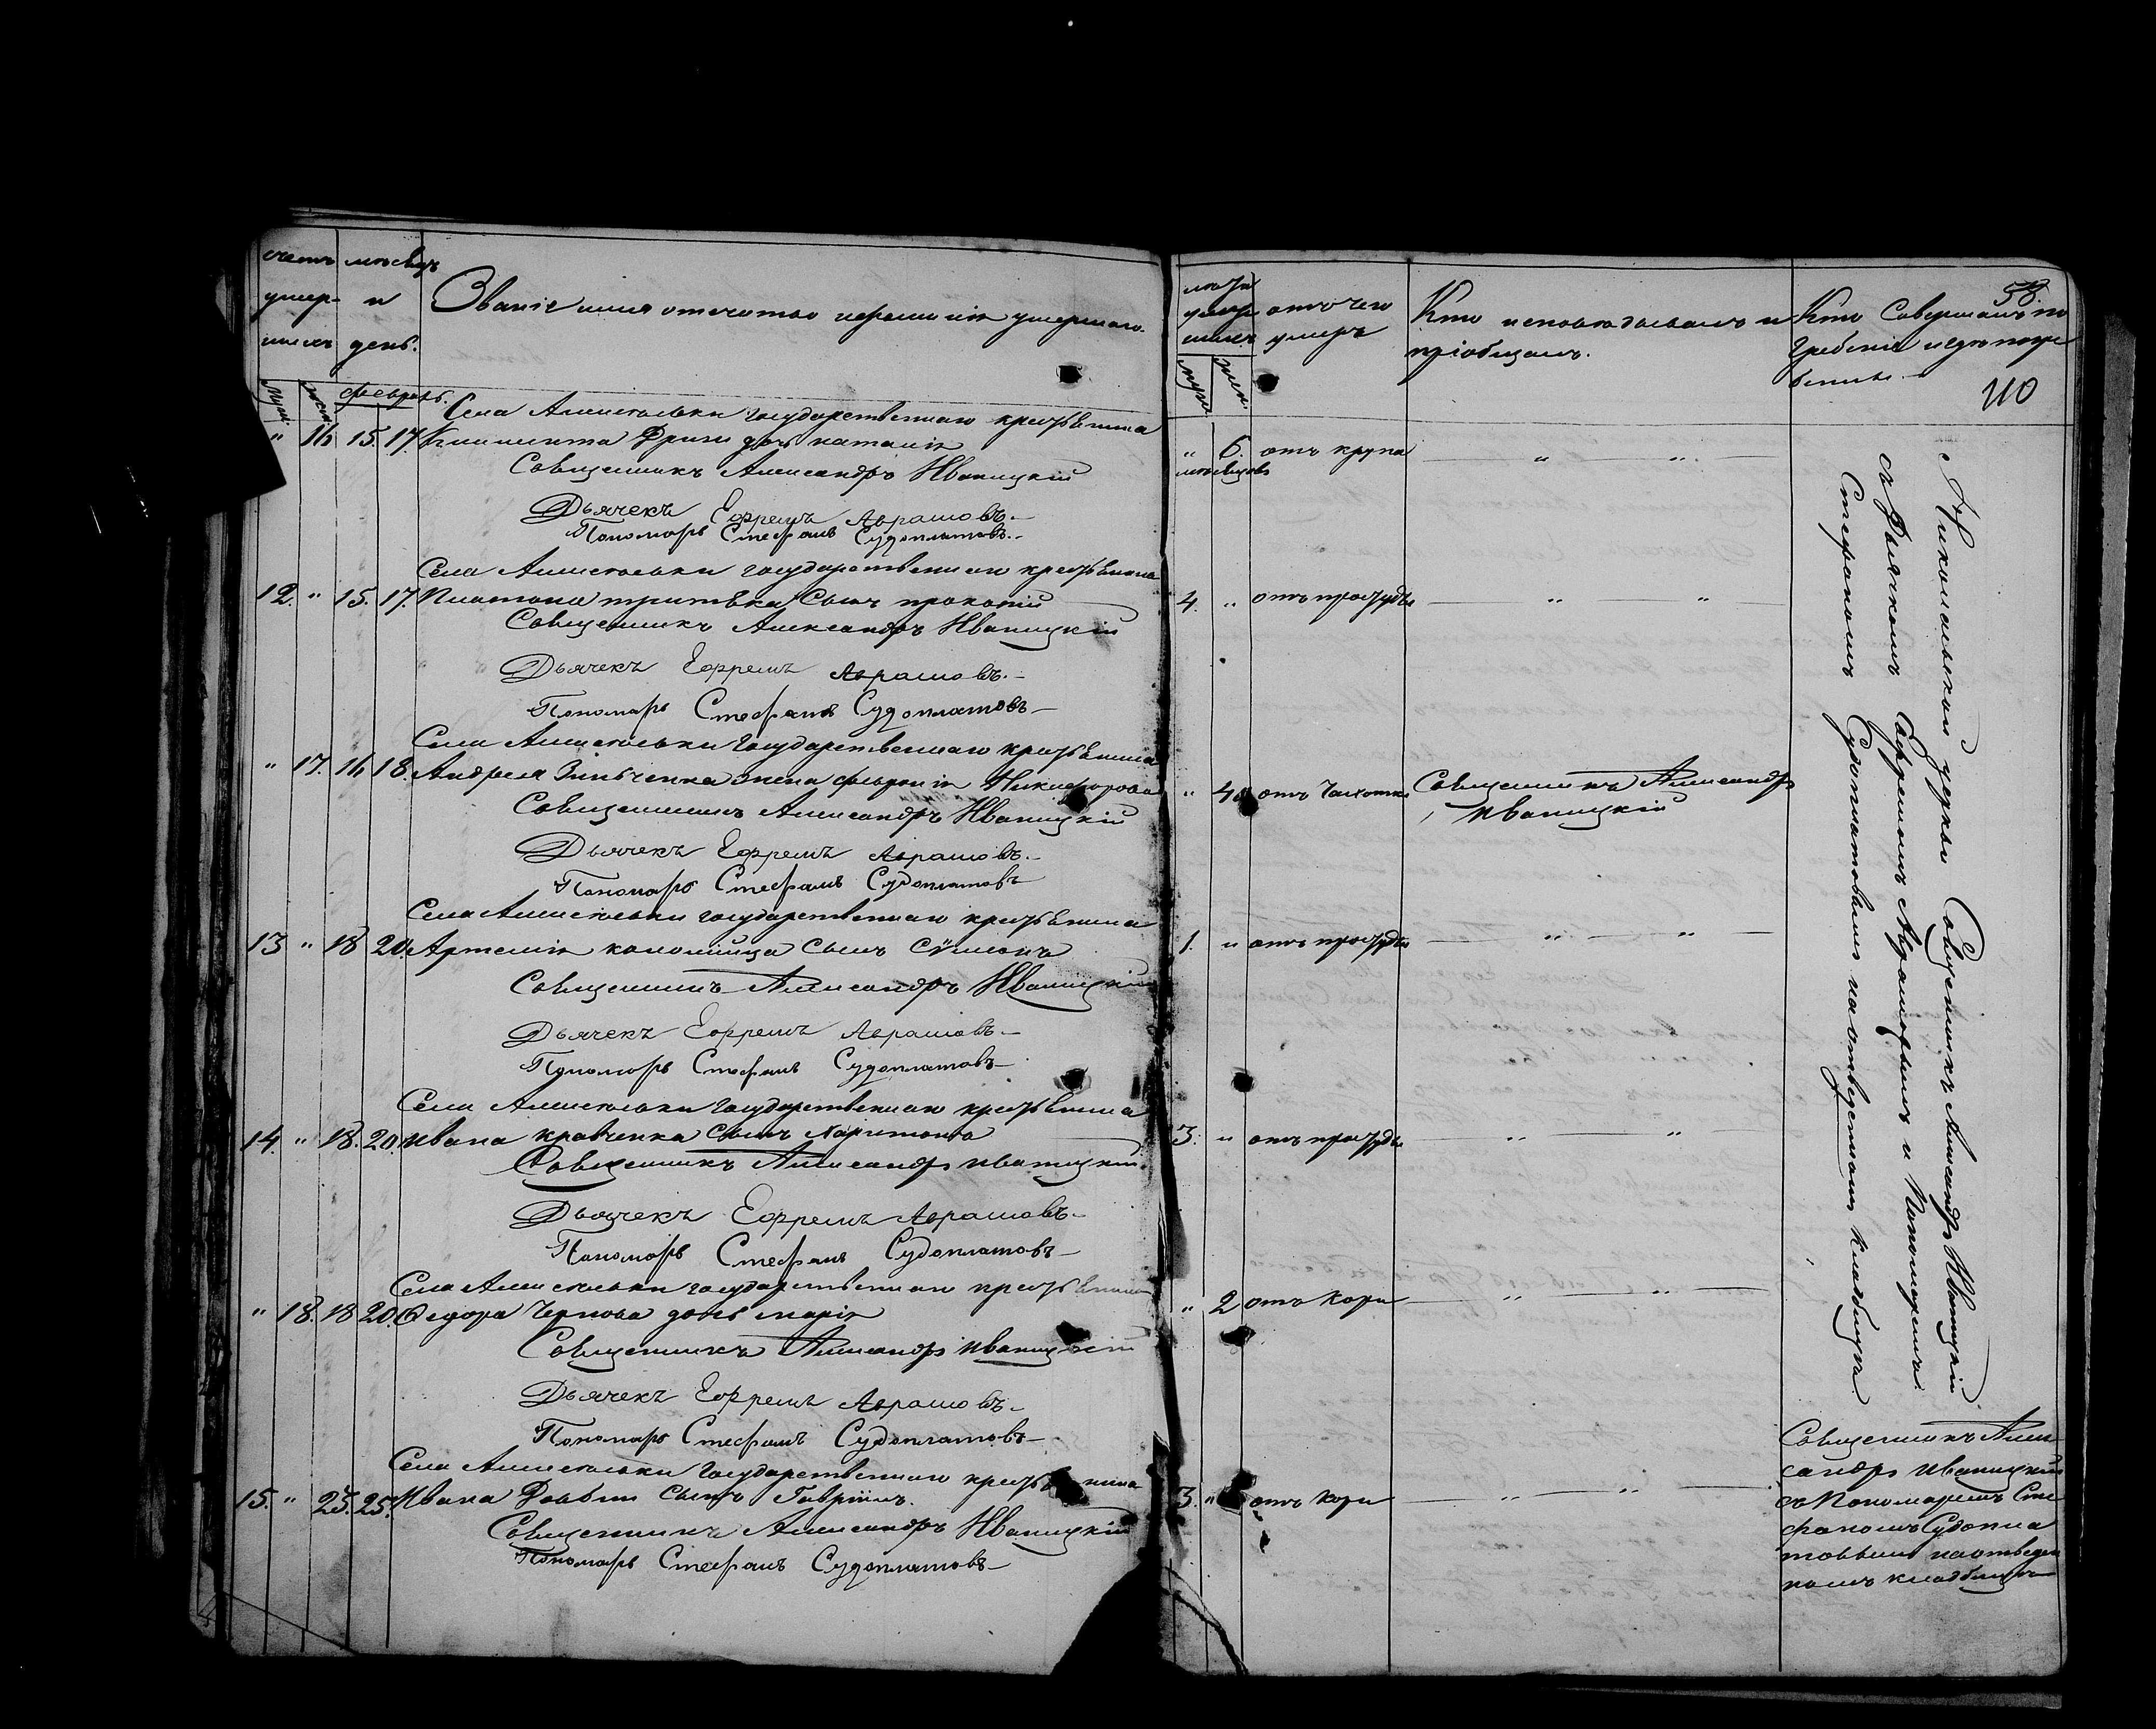 счетъ мѣсяцъ
умер- и
шихъ день.
Званіе имя отечество и фамилія умершаго.
лѣта
умер
шихъ
отъ чего
умеръ
Кто исповѣдывалъ и
пріобщалъ.
58.
Кто Совершалъ по
гребеніе и гдѣ погре
бены.
110
муж. жен. Февраль.
муж. жен.
Села Алексѣевки государственнаго крестьянина
" 16 15. 17. Климента дочь наталія
" 6. отъ крупа " "
мѣсяцовъ
Священникъ Александръ Иваницкій
Дьячекъ Ефремъ Авраmовъ.
Пономарь Стефанъ Судоплатовъ.
Села Алексѣевки государственнаго крестьянина
12. " 15. 17. Платона Сынъ прокопій
4. " отъ простуды " "
Священникъ Александръ Иваницкій
Дьячекъ Ефремъ Аврамовъ.
Пономарь Стефанъ Судоплатовъ
Села Алексѣевки государственнаго крестьянина
" 17. 16 18. Андрея Зинченка жена Никифорова
" отъ Чахотки Священникъ Александръ
Иваницкій
Священникъ Александръ Иваницкій
Дьячекъ Ефремъ Аврамовъ.
Пономарь Стефанъ Судоплатовъ
Села Алексѣевки государственнаго крестьянина
13 " 18 20. Артемія коломійца Сынъ Сѵмеонъ
1. " отъ простуды " "
Священникъ Александръ Иваницкій
Дьячекъ Ефремъ Аврамовъ.
Пономарь Стефанъ Судоплатовъ
Села Алексѣевки государственнаго крестьянина
14. " 18. 20. Ивана кравченка Сынъ Харитонъ
3. " отъ простуды " "
Священникъ Александръ Иваницкій.
Дьячекъ Ефремъ Аврамовъ.
Пономарь Стефанъ Судоплатовъ
Села Алексѣевки государственнаго крестьянина
" 18. 18 20. Ѳедора Чернова дочь марія
" 2 отъ Кори " "
Священникъ Александръ Иваницкій
Дьячекъ Ефремъ Аврамовъ.
Пономарь Стефанъ Судоплатовъ
Села Алексѣевки государственнаго крестьянина
15. " 23. 25. Ивана Сынъ Гавріилъ.
3. " отъ Кори " "
Священникъ Александръ Иваницкій
Пономарь Стефанъ Судоплатовъ
Николаевской церкви Священникъ Александръ Иваницкій
съ Дьячкомъ Ефремомъ Аврамовымъ и Пономаремъ
Стефаномъ Судоплатовымъ на отведенномъ кладбищѣ.
Священникъ Алек
сандръ Иваницкій
съ Пономаремъ Сте
фаномъ Судопла
товымъ на отведен
номъ кладбищѣ